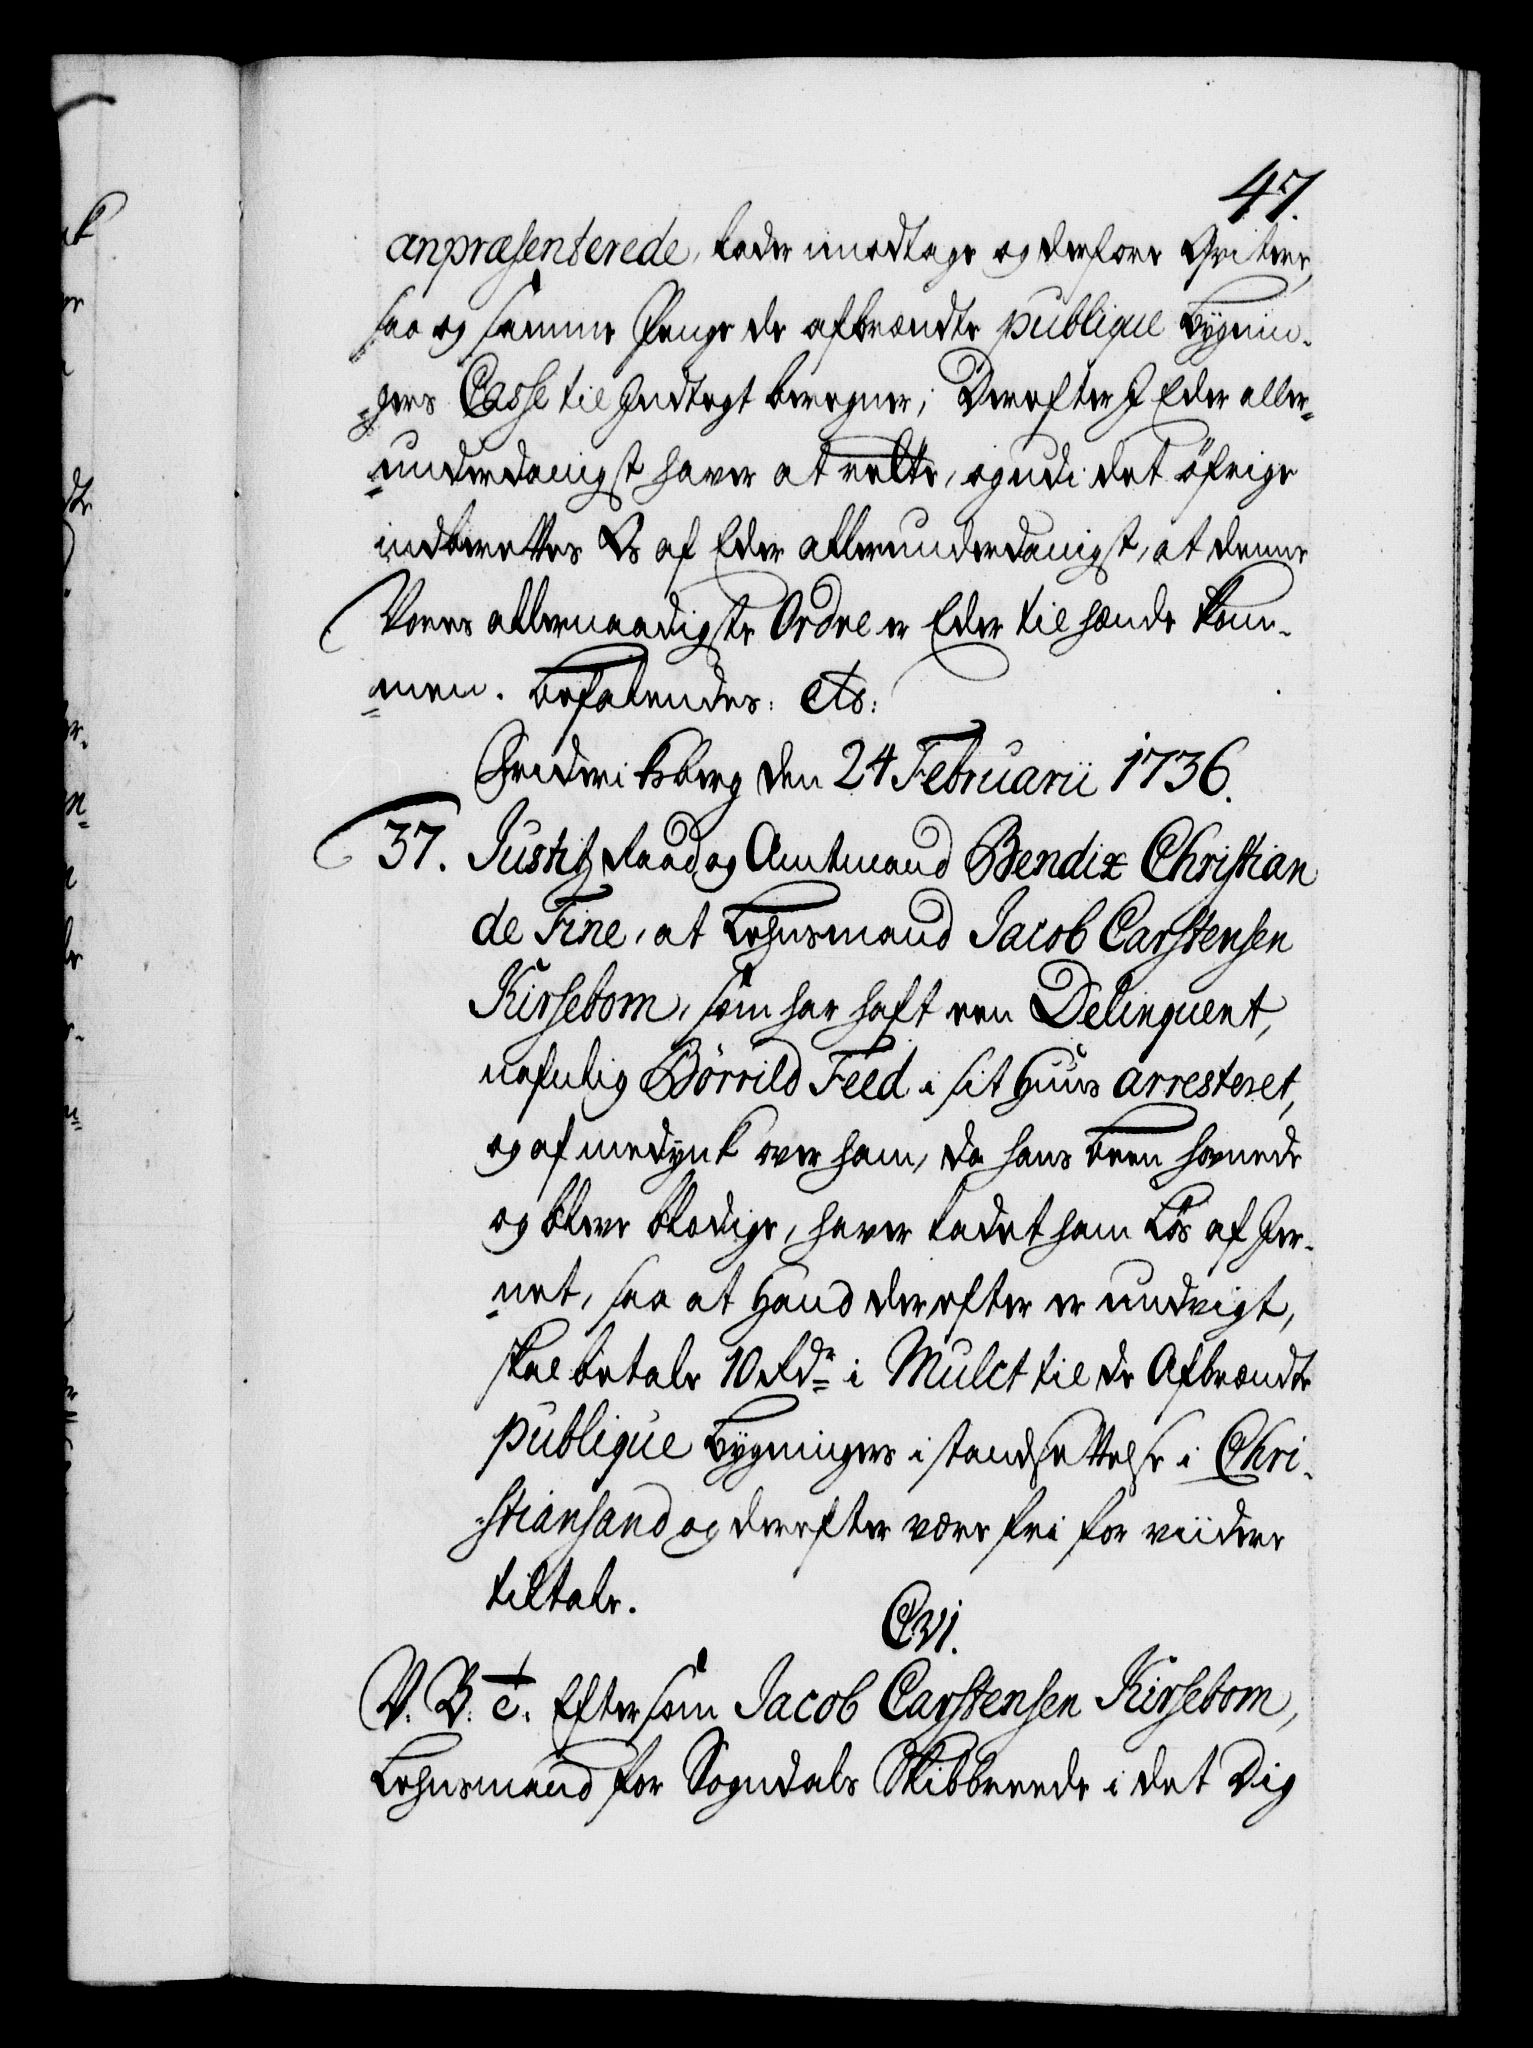 47.
anpræsenterede, lader imodtage og derfore Qvitere,
saa og samme Penge de afbrændte publique Bygnin-
gers Casse til Indtegt beregner; Derefter I Eder aller-
underdanigst haver at rette, og udi det öfrige
indberettes Os af Eder allerunderdanigst, at denne
Vores allernaadigste Ordre er Eder til hænde kom-
men. Befalendes: etc:
Friderichsberg den 24 Februarii 1736.
37. Justitz Raad og Amtmand Bendix Christian
de Fine, at Lehnsmand Jacob Carstensen
Kirsebom, som har haft een Delinquent,
nefnlig Börrild Feed i sit Huus arresteret,
og af medynk over ham, da hans Been hovnede
og bleve blodige, haver ladet ham Lös af Jer-
net, saa at Hand derefter er undvigt,
skal betale 10 Rdr i Mulct til de Afbrændte
publique Bygningers istandsettelse i Chri-
stiansand og derefter være fri for viidere
tiltale.
C. VI.
V. B. G. Efter som Jacob Carstensen Kirsebom,
Lehnsmand for Sogndals Skibbreede i det Dig